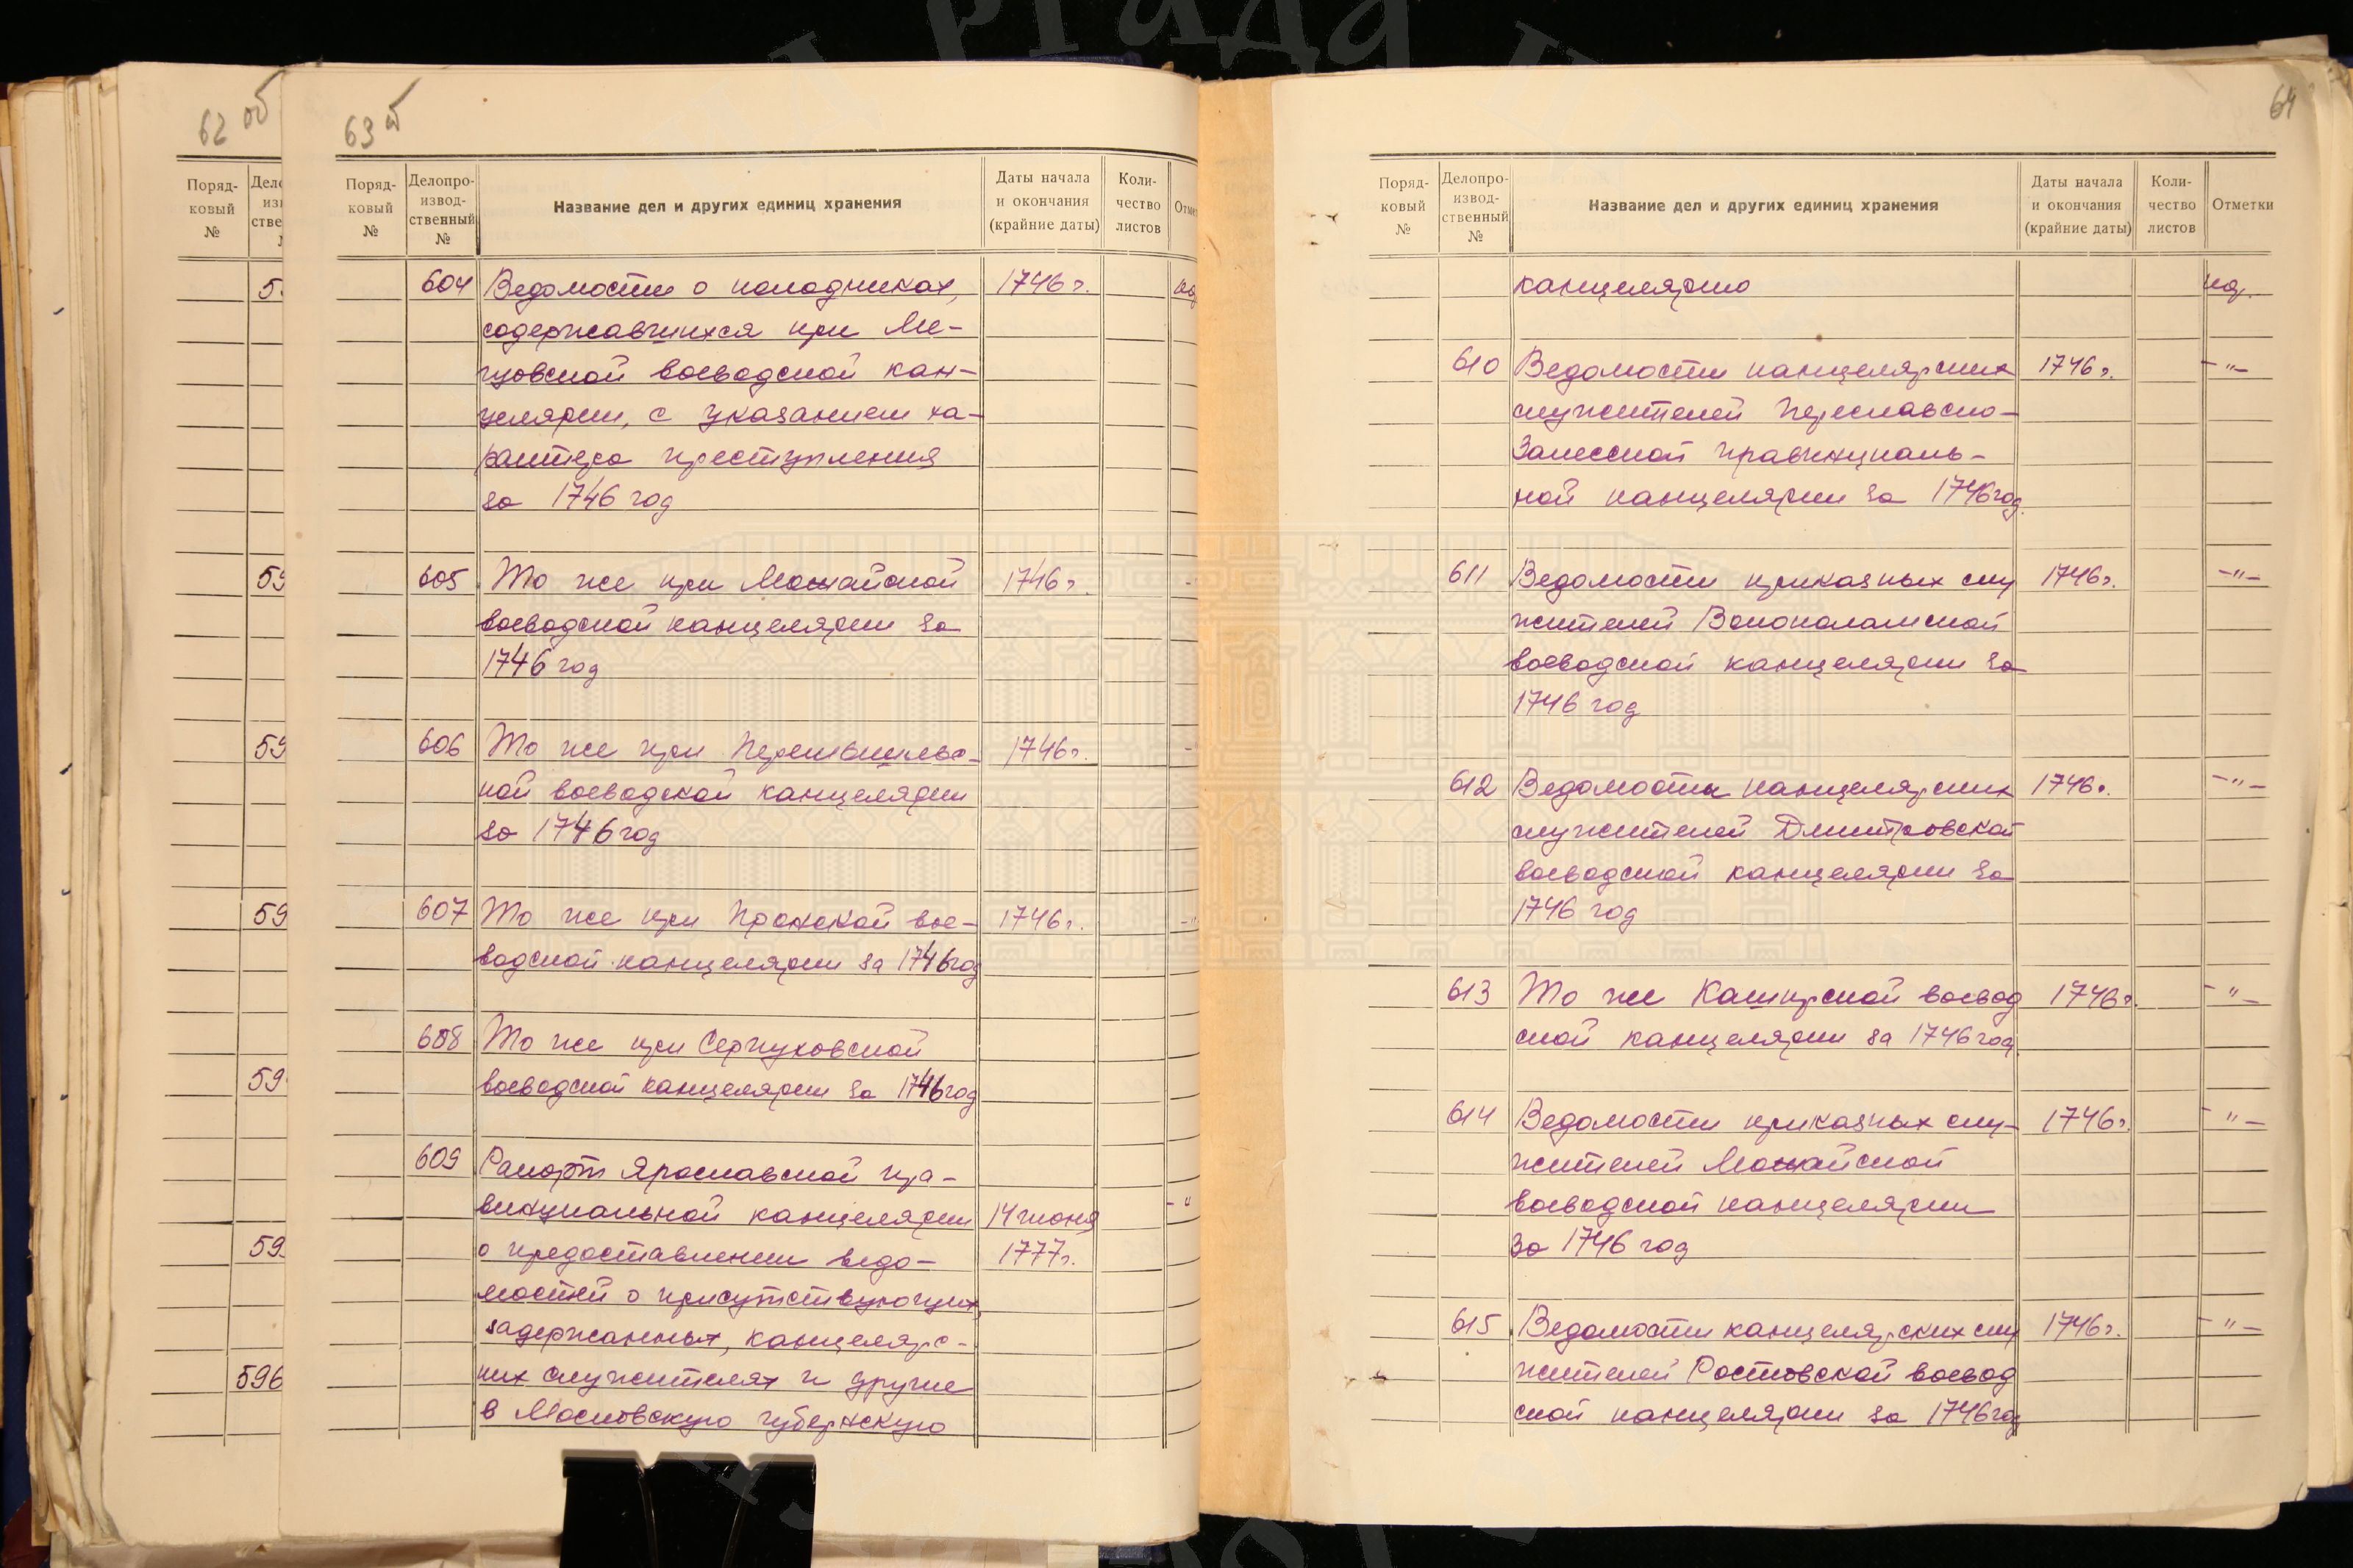 62 об
Поряд-
ковый
№
59
59
59
59
59
596
63 об
Поряд-
ковый
№
Делопро-
извод-
ственный
№
Название дел и других единиц хранения
Даты начала
и окончания
(крайние даты)
Коли-
чество
листов
604 Ведомости о колодниках, 1746 г.
содержавшихся при Ме-
щовской воеводской кан-
целярии, с указанием ха-
рактера преступления
за 1746 год
605 То же при Можайской 1746 г.
воеводской канцелярии за
1746 год
606 То же при Перемышльс- 1746 г.
кой воеводской канцелярии
за 1746 год
607 То же при Пронской вое- 1746 г.
водской канцелярии за 1746 год
608 То же при Серпуховской
воеводской канцелярии за 1746 год
609 Рапорт Ярославской про-
винциальной канцелярии 14 июня
о предоставлении ведо- 1777 г.
мостей о присутствующих,
задержанных, канцелярс-
ких служителях и другие
в Московскую губернскую
64
Поряд-
ковый
№
Делопро-
извод-
ственный
№
Название дел и других единиц хранения
Даты начала
и окончания
(крайние даты)
Коли-
чество
листов
Отметки
канцелярию
610 Ведомости канцелярских 1746 г. -"-
служителей Переславско-
Залесской правинциаль-
ной канцелярии за 1746 год.
611 Ведомости приказных слу 1746 г. -"-
жителей Волоколамской
воеводской канцелярии за
1746 год
612 Ведомости канцелярских 1746 г. -"-
служителей Дмитровской
воеводской канцелярии за
1746 год
613 То же Каширской воевод 1746 г. -"-
ской канцелярии за 1746 год.
614 Ведомости приказных слу- 1746 г. -"-
жителей Можайской
воеводской канцелярии
за 1746 год
615 Ведомости канцелярских слу 1746 г. -"-
жителей Ростовской воевод
ской канцелярии за 1746 год